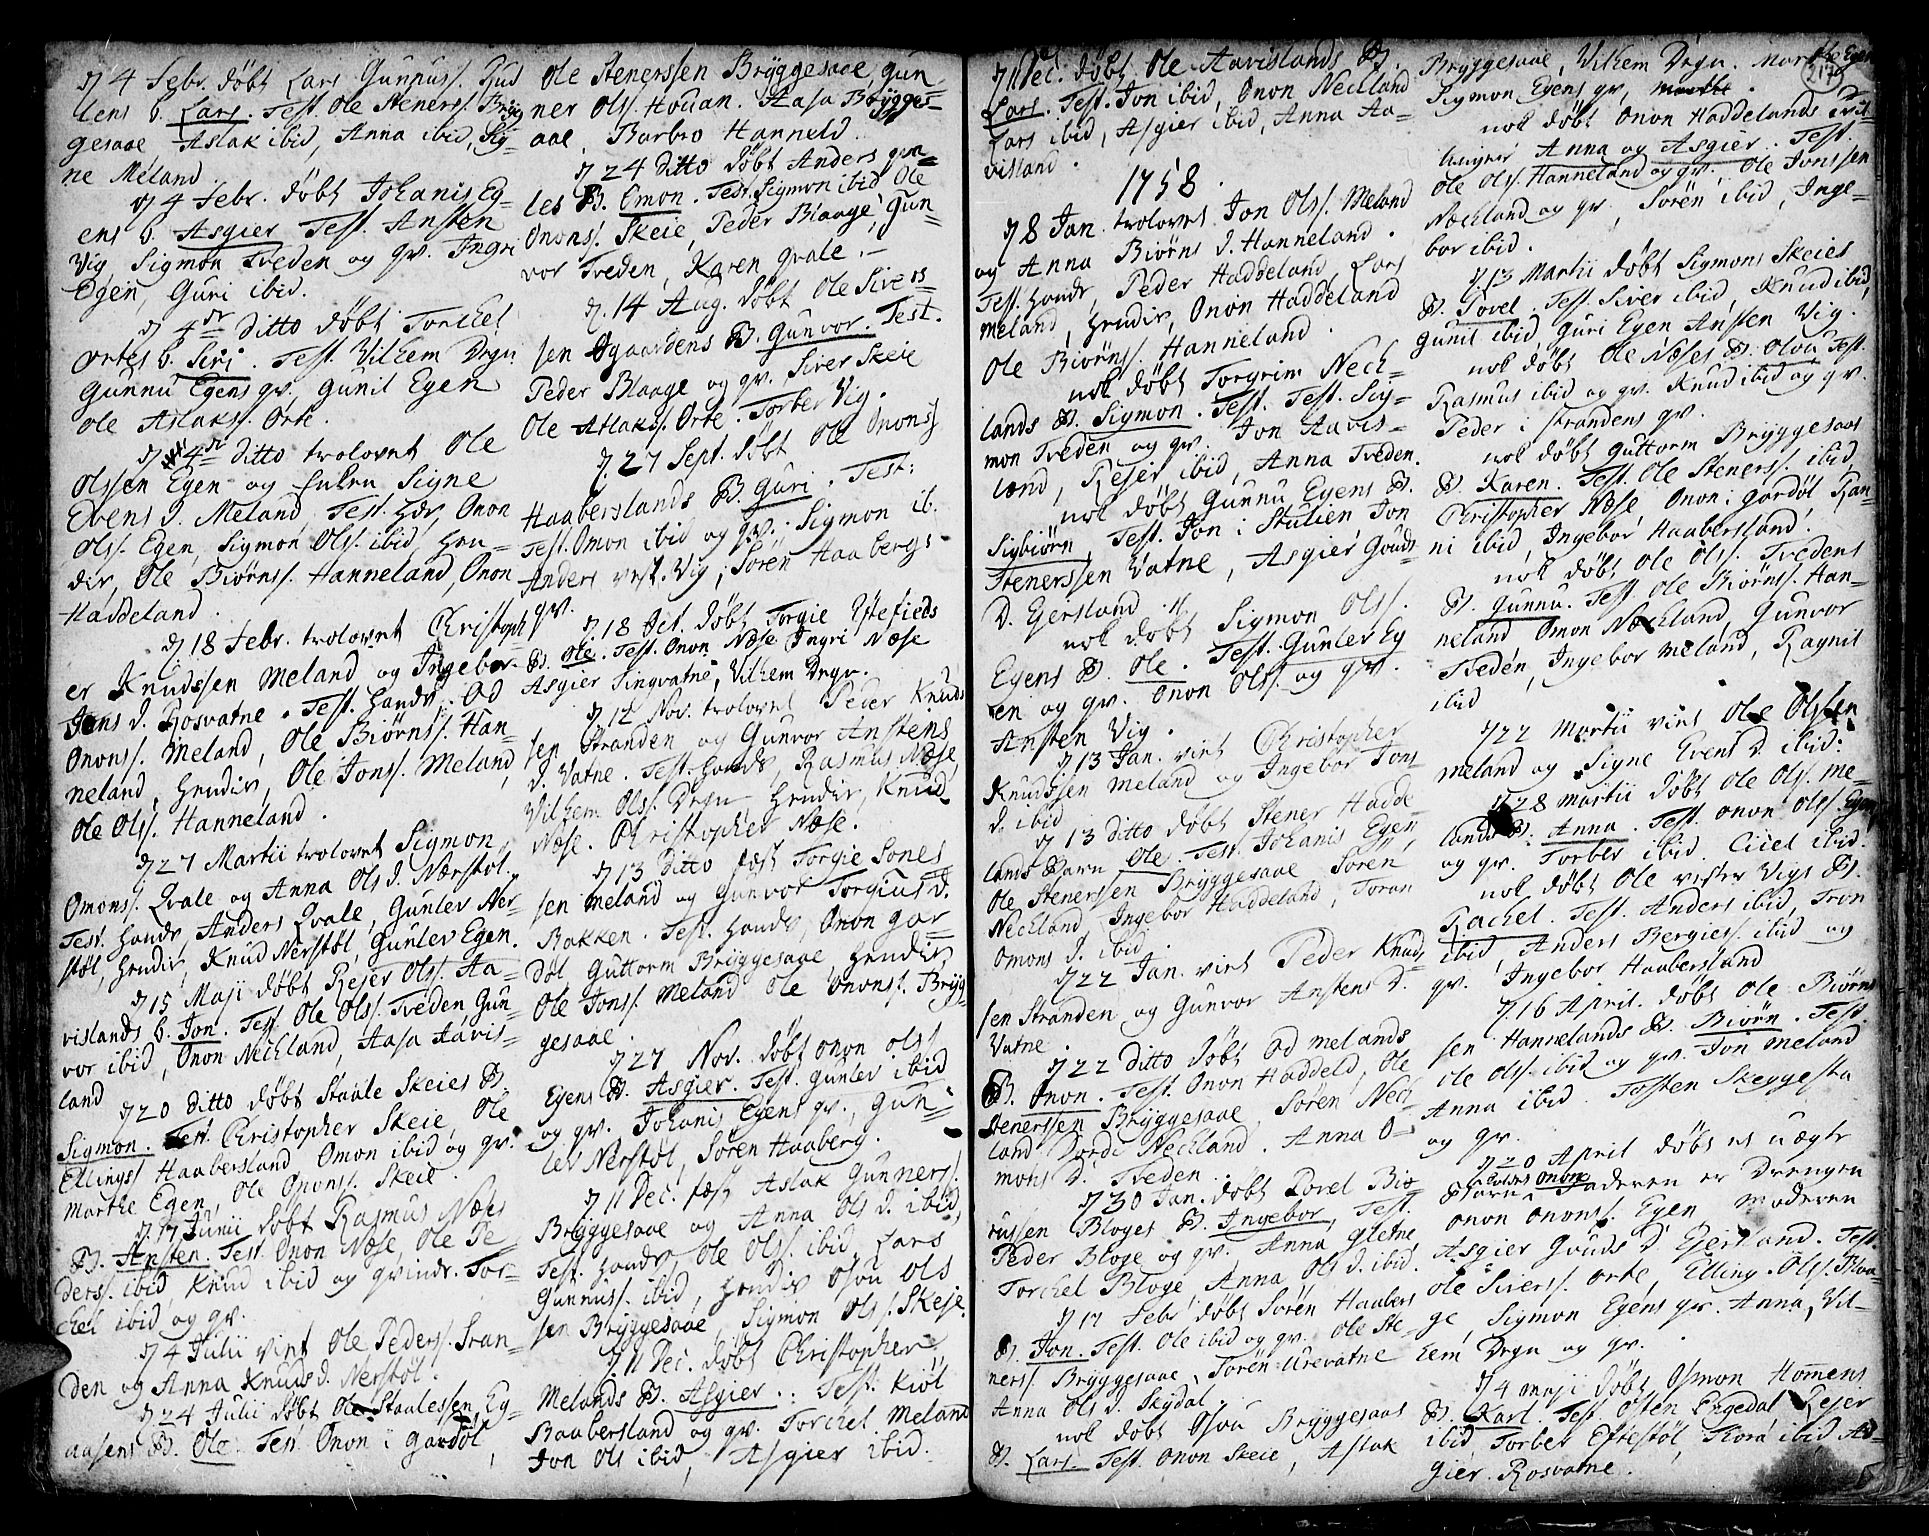 d 4 Febr. døbt Lars Gunnuss. Rud
lens b. Lars. Test. Ole Steners. Bryg
gesaae Aslak ibid, Anna ibid, Sig=
ne Meland.
d 4 Febr. døbt Johanis Eg=
ens b. Asgier Test. Ansten
Vig, Sigmon Tveden og qv. Ingri
Egen, Guri ibid.
d 4de ditto døbt Torchel
ortes b. Siri. Test. Vilhem Degn
Gunnu Egens qv. Gunil Egen
Ole Aslaks. Orte.
d 4de ditto trolovet Ole
Olssen Egen og Signe
Evens d. Meland, Test. Onon
Ols. Egen, Sigmon Olss. ibid hen=
dis, Ole Biørnss. Hanneland, Onon
Haddeland.
d 18 Febr. trolovet Christoph
er Knudssen Meland og Ingebor
Jens d. Rosvatne. Test. hands Od
Ononss. Meland, Ole Biørnss. Han=
neland, hendis, Ole Jonss. Meland,
Ole Olss. Hanneland.
d 27 Martii trolovet Sigmon
Omonss. Qvale og Anna Ols d. Nærstøl.
Test. hands, Anders Qvale, Gunlev Ner=
støl, hendis, Knud Nerstøl, Gunlev Egen.
d 15 Maji døbt Rejer Olss. Aa=
vislands b. Jon. Test. Ole Olss. Tveden, Gun
vor ibid, Onon Neckland, Aasa Aavis=
land
d 20 ditto døbt Staale Skeies B.
Sigmon. Test. Christopher Skeie, Ole
Ellingss Haabersland Omon ibid og qv.
Marthe Egen, Ole Ononss. Skeie.
d 17 Junii døbt Rasmus Næs
B. Ansten. Test. Onon Næse, Ole Pe=
ders. ibid, Knud ibid og qvinde. Tor=
chel ibid og qv.
d 4 Julii viet Ole Peders. Stran=
den og Anna Knuds d. Nerstøl.
d 24 Julii døbt Ole Staalessen Eg=
aasens B. Ole. Test. Onon i Gardøl,
Ole Stenerssen Bryggesaae, Gun=
ner Olss. Houan. Aasa Brygges=
aae, Barbro Hanneld.
d 24 ditto døbt Anders qva=
les B. Omon. Test. Sigmon ibid, Ole
Ononss. Skeie, Peder Blaage, Gun=
vor Tveden, Karen Qvale.
d. 14 Aug. døbt Ole Sivers
sen Øgaardens B. Gunvor. Test.
Peder Blaage og qv. Siver Skeie
Ole Aslakss. Orte. Torber Vig.
d. 27 Sept. døbt Ole Ononss
Haaberslands B. Guri. Test:
Test. Omon ibid og qv. Sigmon ib.
Anders vest. Vig, Søren Haabergs
qv.
d 18 Oct. døbt Torgie Eftefieds
B. Ole. Test. Onon Næse Ingri Næse
Asgier Lingvatne, Vilhem Degn.
d. 12 Nov. trolovet Peder Knuds
sen Stranden og Gunvor Anstens
d. Vatne. Test. hands, Rasmus Næse,
Vilhem Olss. Degn hendis, Knud
Næse. Christopher Næse.
d 13 ditto fæst Torgie Jones
sen Meland og Gunvor Torgius d.
Bakken. Test. hands, Onon Gar
døl Guttorm Bryggesaae hendis,
Ole Jonss. Meland Ole Ononss. Bryg=
gesaae.
d 27 Nov. døbt Onon Olss
Egens B. Asgier. Test. Gunlev ibid
og qv. Johanis Egens qv., Gun=
lev Nerstøl, Søren Haaberg.
d 11 Dec. fæst Aslak Gunners.
Bryggesaae og Anna Ols d. ibid,
Test. hands, Ole Olss. ibid, Lars
Gunnuss. ibid, hendis Osou Ols
sen Bryggesaae, Sigmon Olss. Skeje.
d 11 Dec. døbt Christopher
Melands B. Asgier. Test. Kiøl
Haabersland og qv. Torchel Meland
Jon Ols ibid, Asgier ibid.
d 11 Dec. døbt Ole Aavislands B.
Lars. Test. Jon ibid, Onon Neckland
Lars ibid, Asgier ibid, Anna Aa=
visland.
1758.
d 8 Jan. trolovet Jon Olss. Meland
og Anna Biørns d. Hanneland.
Test. hands, Peder Haddeland, Lars
Meland, hendis, Onon Haddeland
Ole Biørnss. Hanneland.
nok døbt Torgrim Neck=
lands B. Sigmon. Test. Test. Sig=
mon Tveden og qv. Jon Aavis=
land, Rejer ibid, Anna Tveden.
nok døbt Gunnu Egens B.
Sigbiørn, Test. Jon i Stulien Jon
Stenerssen Vatne, Asgier Gouds
D. Ejersland.
nok døbt Sigmon Olss.
Egens B. Ole. Test. Gunlev Eg
en og qv. Onon Olss. og qv.
Ansten Vig.
d 13 Jan. viet Christopher
Knudssen Meland og Ingebor Jons
d. ibid
d 13 ditto døbt Stener Hadde
lands Barn Ole. Test. Johanis Egen,
Ole Stenerssen Bryggesaae Søren
Neckland, Ingebor Haddeland, Toran
Omons d. ibid.
d 22 Jan. viet Peder Knuds
sen Stranden og Gunvor Anstens D.
Vatne.
d 22 ditto døbt Od Melands
B. Onon. Test. Onon Haddeld, Ole
Stenerssen Bryggesaae, Søren Neck=
land Dordi Neckland. Anna O=
mons D. Tveden.
d 30 Jan. døbt Povel Bio=
russen Bloges B. Ingebor, Test.
Peder Bloge og qv. Anna Gletne,
Torchel Bloge, Anna Ols d. ibid.
d 17 Febr døbt Søren Haabers
B. Jon. Test. Ole ibid og qv. Ole Ste=
ners. Bryggesaae, Søren Urevatne
Anna Ols d. Skydal.
nok døbt Osou Bryggesaas
B. Lars. Test. Onon Skeie, Aslak
Bryggesaae, Vilhem Degn. Marthe Egen
217
Sigmon Egens qv,
nok døbt Onon Haddelands Tvil=
linger Anna og Asgier. Test.
Ole Olss. Hanneland og qv. Ole Jonssen
Neckland og qv, Søren ibid, Inge=
bor ibid.
d. 13 Martii døbt Sigmons Skeies
B. Povel. Test. Siver ibid, Knud ibid,
Gunil ibid, Guri Egen Ansten Vig.
nok døbt Ole Næses B. Olou Test.
Rasmus ibid og qv. Knud ibid og qv.
Peder i Strandens qv.
nok døbt Guttorm Bryggesaas
B. Karen. Test. Ole Stenerss. ibid
Christopher Næse, Onon i Gardøl Ran=
ni ibid, Ingebor Haabersland.
nok døbt Ole Ols. Tvedens
B. Gunnu. Test. Ole Biørnss. Han=
neland Omon Neckland, Gunvor
Tveden, Ingebor Meland, Ragnil
ibid
d 22 Martii viet Ole Olssen
Meland og Signe Evens d. ibid.
d 28 Martii døbt Ole Ols. Me=
lands B. Anna. Test. Onon Olss. Egen
og qv. Torber ibid. Cicel ibid.
nok døbt Ole vester Vigs B.
Rachel. Test. Anders ibid, Tron
ibid, Anders Bergiess. ibid og
qv. Ingebor Haabersland
d 16 April. døbt Ole Biørns
sen Hannelands B. Biørn. Test.
Ole Olss. ibid og qv. Jon Meland
Anna ibid. Tosten Skeggesta
og qv.
d 20 April døbt et uægte
Barn Onon Faderen er Drengen
Onon Ononss. Egen Moderen
Asgier Gouds D Ejersland. Test.
Ole Siverss. Orte, Elling Olss. Bloa=
ge, Sigmon Egens qv. Anna, Vil=
hem Degn og qv.
d 4 Maji døbt Osmon Homens
B. Karl. Test. Osten Engedal Rejer
ibid, Torber Eftestøl, Tora ibid As=
gier Rosvatne.